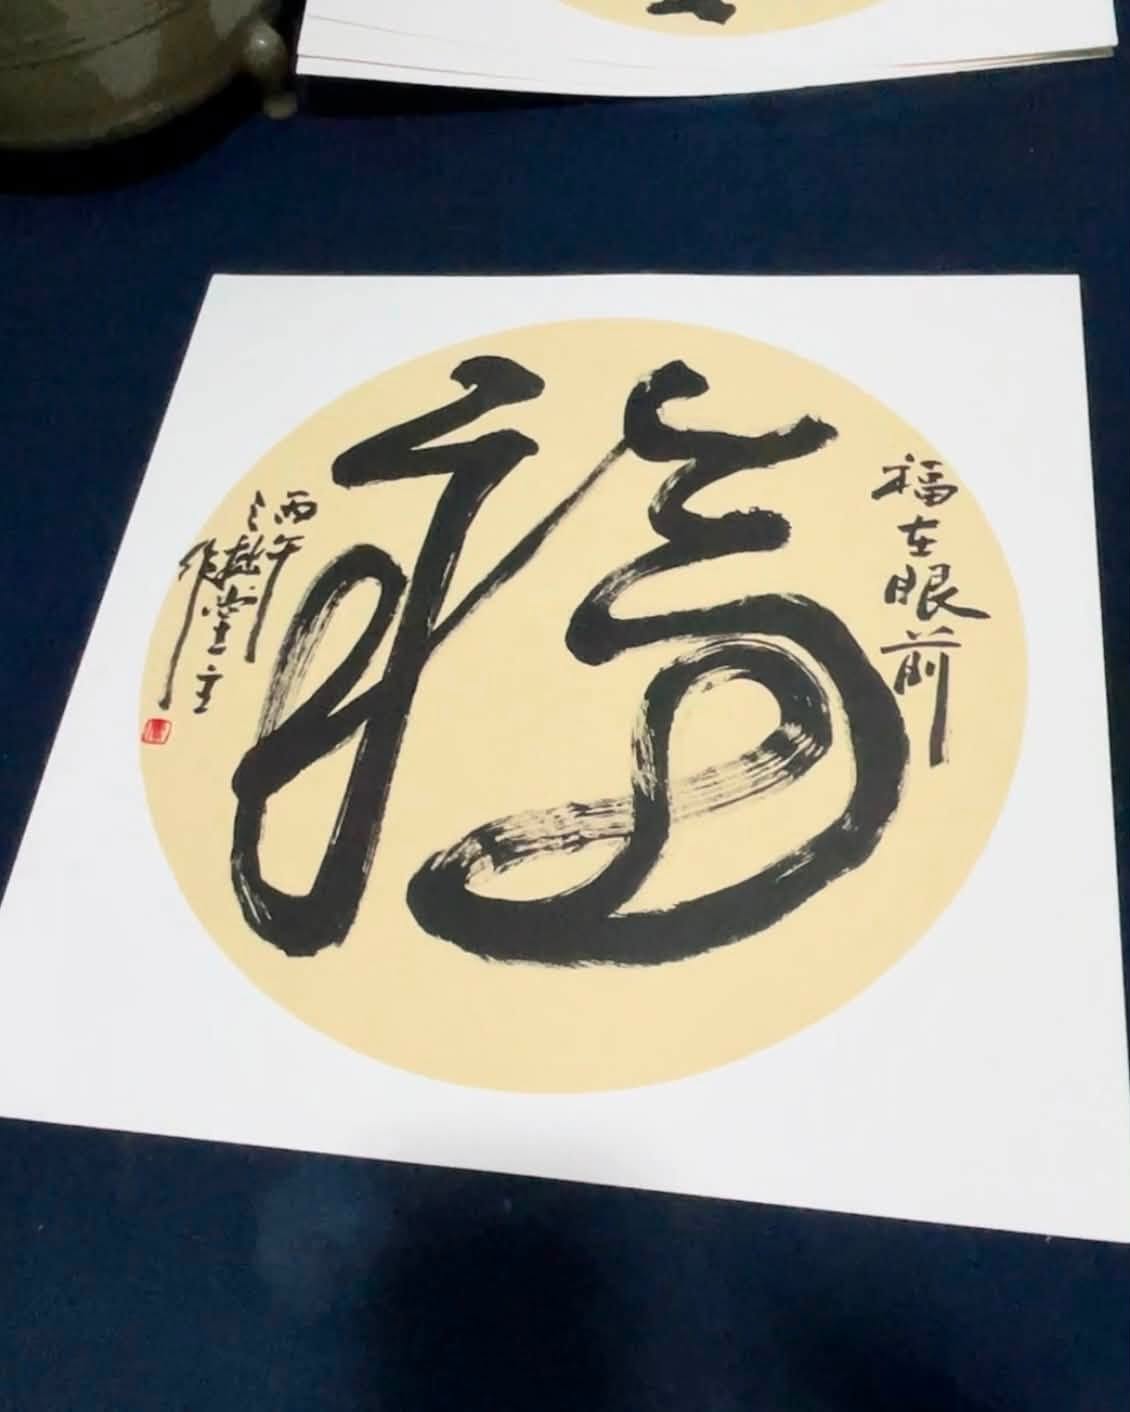 福
福在眼前
丙午
拙堂主
作